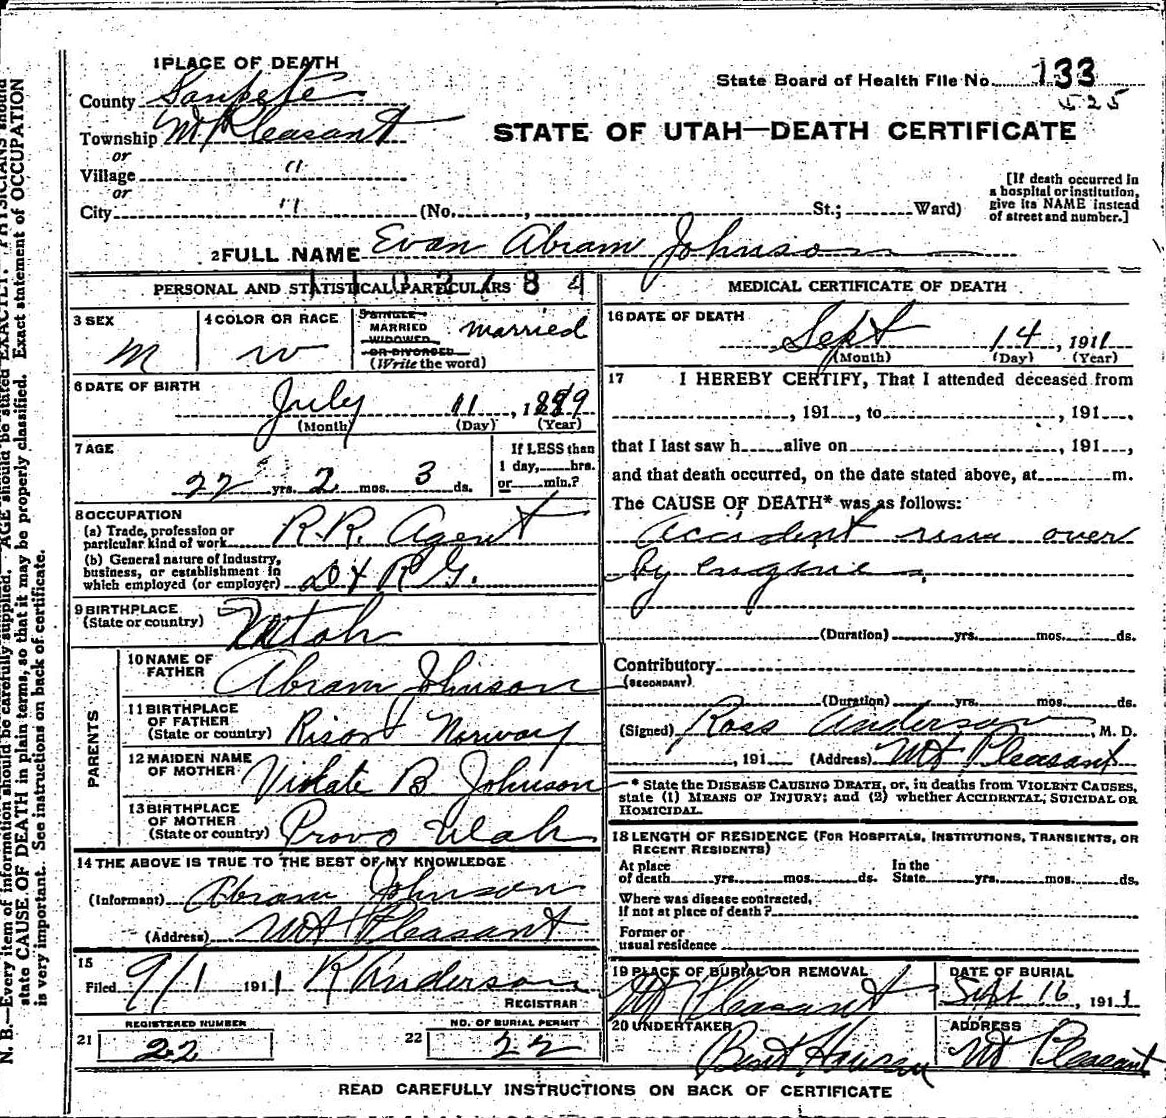 1 PLACE OF DEATH
County Sanpete
Township Mt Pleasant
or
Village "
or
City "
(No. , St.; Ward)
State Board of Health File No. 133
525
STATE OF UTAH—DEATH CERTIFICATE
[If death occurred in
a hospital or institution,
give its NAME instead
of street and number.]
2 FULL NAME Evan Abram Johnson
PERSONAL AND STATISTICAL PARTICULARS
3 SEX
M
4 COLOR OR RACE
W
5 SINGLE
MARRIED
WIDOWED
OR DIVORCED
(Write the word)
married
6 DATE OF BIRTH
July 11, 1889
(Month) (Day) (Year)
7 AGE
22 yrs. 2 mos. 3 ds.
If LESS than
1 day, hrs.
or min.?
8 OCCUPATION
(a) Trade, profession or
particular kind of work R.R. Agent
(b) General nature of industry,
business, or establishment in
which employed (or employer) D & R G.
9 BIRTHPLACE
(State or country) Utah
PARENTS
10 NAME OF
FATHER Abram Johnson
11 BIRTHPLACE
OF FATHER
(State or country) Norway
12 MAIDEN NAME
OF MOTHER Violate B Johnson
13 BIRTHPLACE
OF MOTHER
(State or country) Provo Utah
14 THE ABOVE IS TRUE TO THE BEST OF MY KNOWLEDGE
(Informant) Abram Johnson
(Address) Mt Pleasant
15
Filed 9/1 1911 R Anderson
REGISTRAR
21 REGISTERED NUMBER
22
22 NO. OF BURIAL PERMIT
22
MEDICAL CERTIFICATE OF DEATH
16 DATE OF DEATH
Sept 14, 1911
(Month) (Day) (Year)
17 I HEREBY CERTIFY, That I attended deceased from
, 191 , to , 191 ,
that I last saw h alive on , 191 ,
and that death occurred, on the date stated above, at m.
The CAUSE OF DEATH* was as follows:
Accident run over
by engine
(Duration) yrs. mos. ds.
Contributory
(SECONDARY)
(Duration) yrs. mos. ds.
(Signed) Ross Anderson, M. D.
, 191 (Address) Mt Pleasant
* State the DISEASE CAUSING DEATH, or, in deaths from VIOLENT CAUSES,
state (1) MEANS OF INJURY; and (2) whether ACCIDENTAL, SUICIDAL OR
HOMICIDAL.
18 LENGTH OF RESIDENCE (FOR HOSPITALS, INSTITUTIONS, TRANSIENTS, OR
RECENT RESIDENTS)
At place
of death yrs. mos. ds.
In the
State yrs. mos. ds.
Where was disease contracted,
if not at place of death?
Former or
usual residence
19 PLACE OF BURIAL OR REMOVAL
Mt Pleasant
DATE OF BURIAL
Sept 16, 1911
20 UNDERTAKER
ADDRESS
Mt Pleasant
READ CAREFULLY INSTRUCTIONS ON BACK OF CERTIFICATE
N. B.—Every item of information should be carefully supplied. AGE should be stated EXACTLY. PHYSICIANS should
state CAUSE OF DEATH in plain terms, so that it may be properly classified. Exact statement of OCCUPATION
is very important. See instructions on back of certificate.